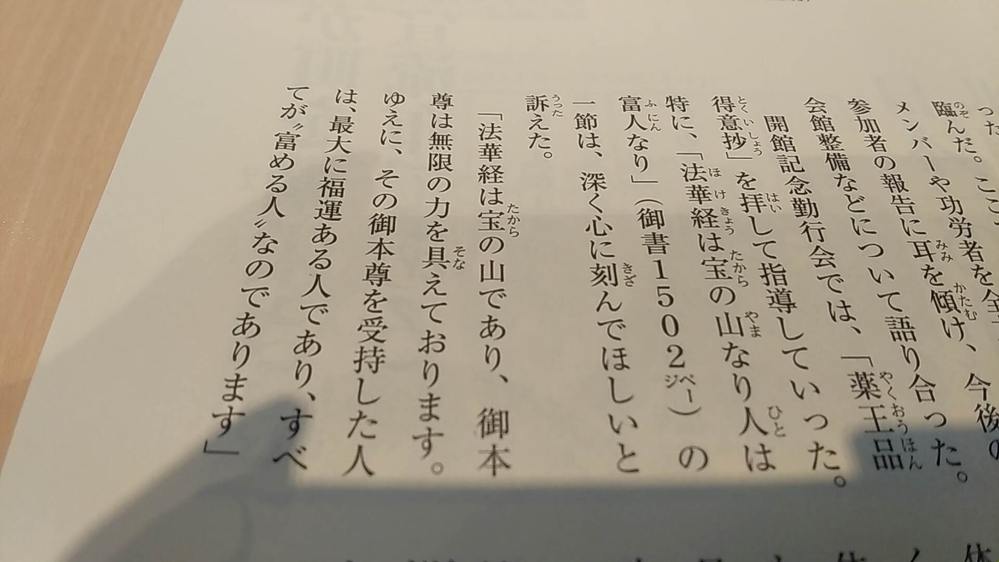 った。ここ
臨んだ。
メンバーや功労者を全
参加者の報告に耳を傾け、今後の
会館整備などについて語り合った。
開館記念勤行会では、「薬王品
得意抄」を拝して指導していった。
特に、「法華経は宝の山なり人は
富人なり」(御書1502ページ)の
一節は、深く心に刻んでほしいと
訴えた。
「法華経は宝の山であり、御本
尊は無限の力を具えております。
ゆえに、その御本尊を受持した人
は、最大に福運ある人であり、すべ
てが〝富める人〟なのであります」